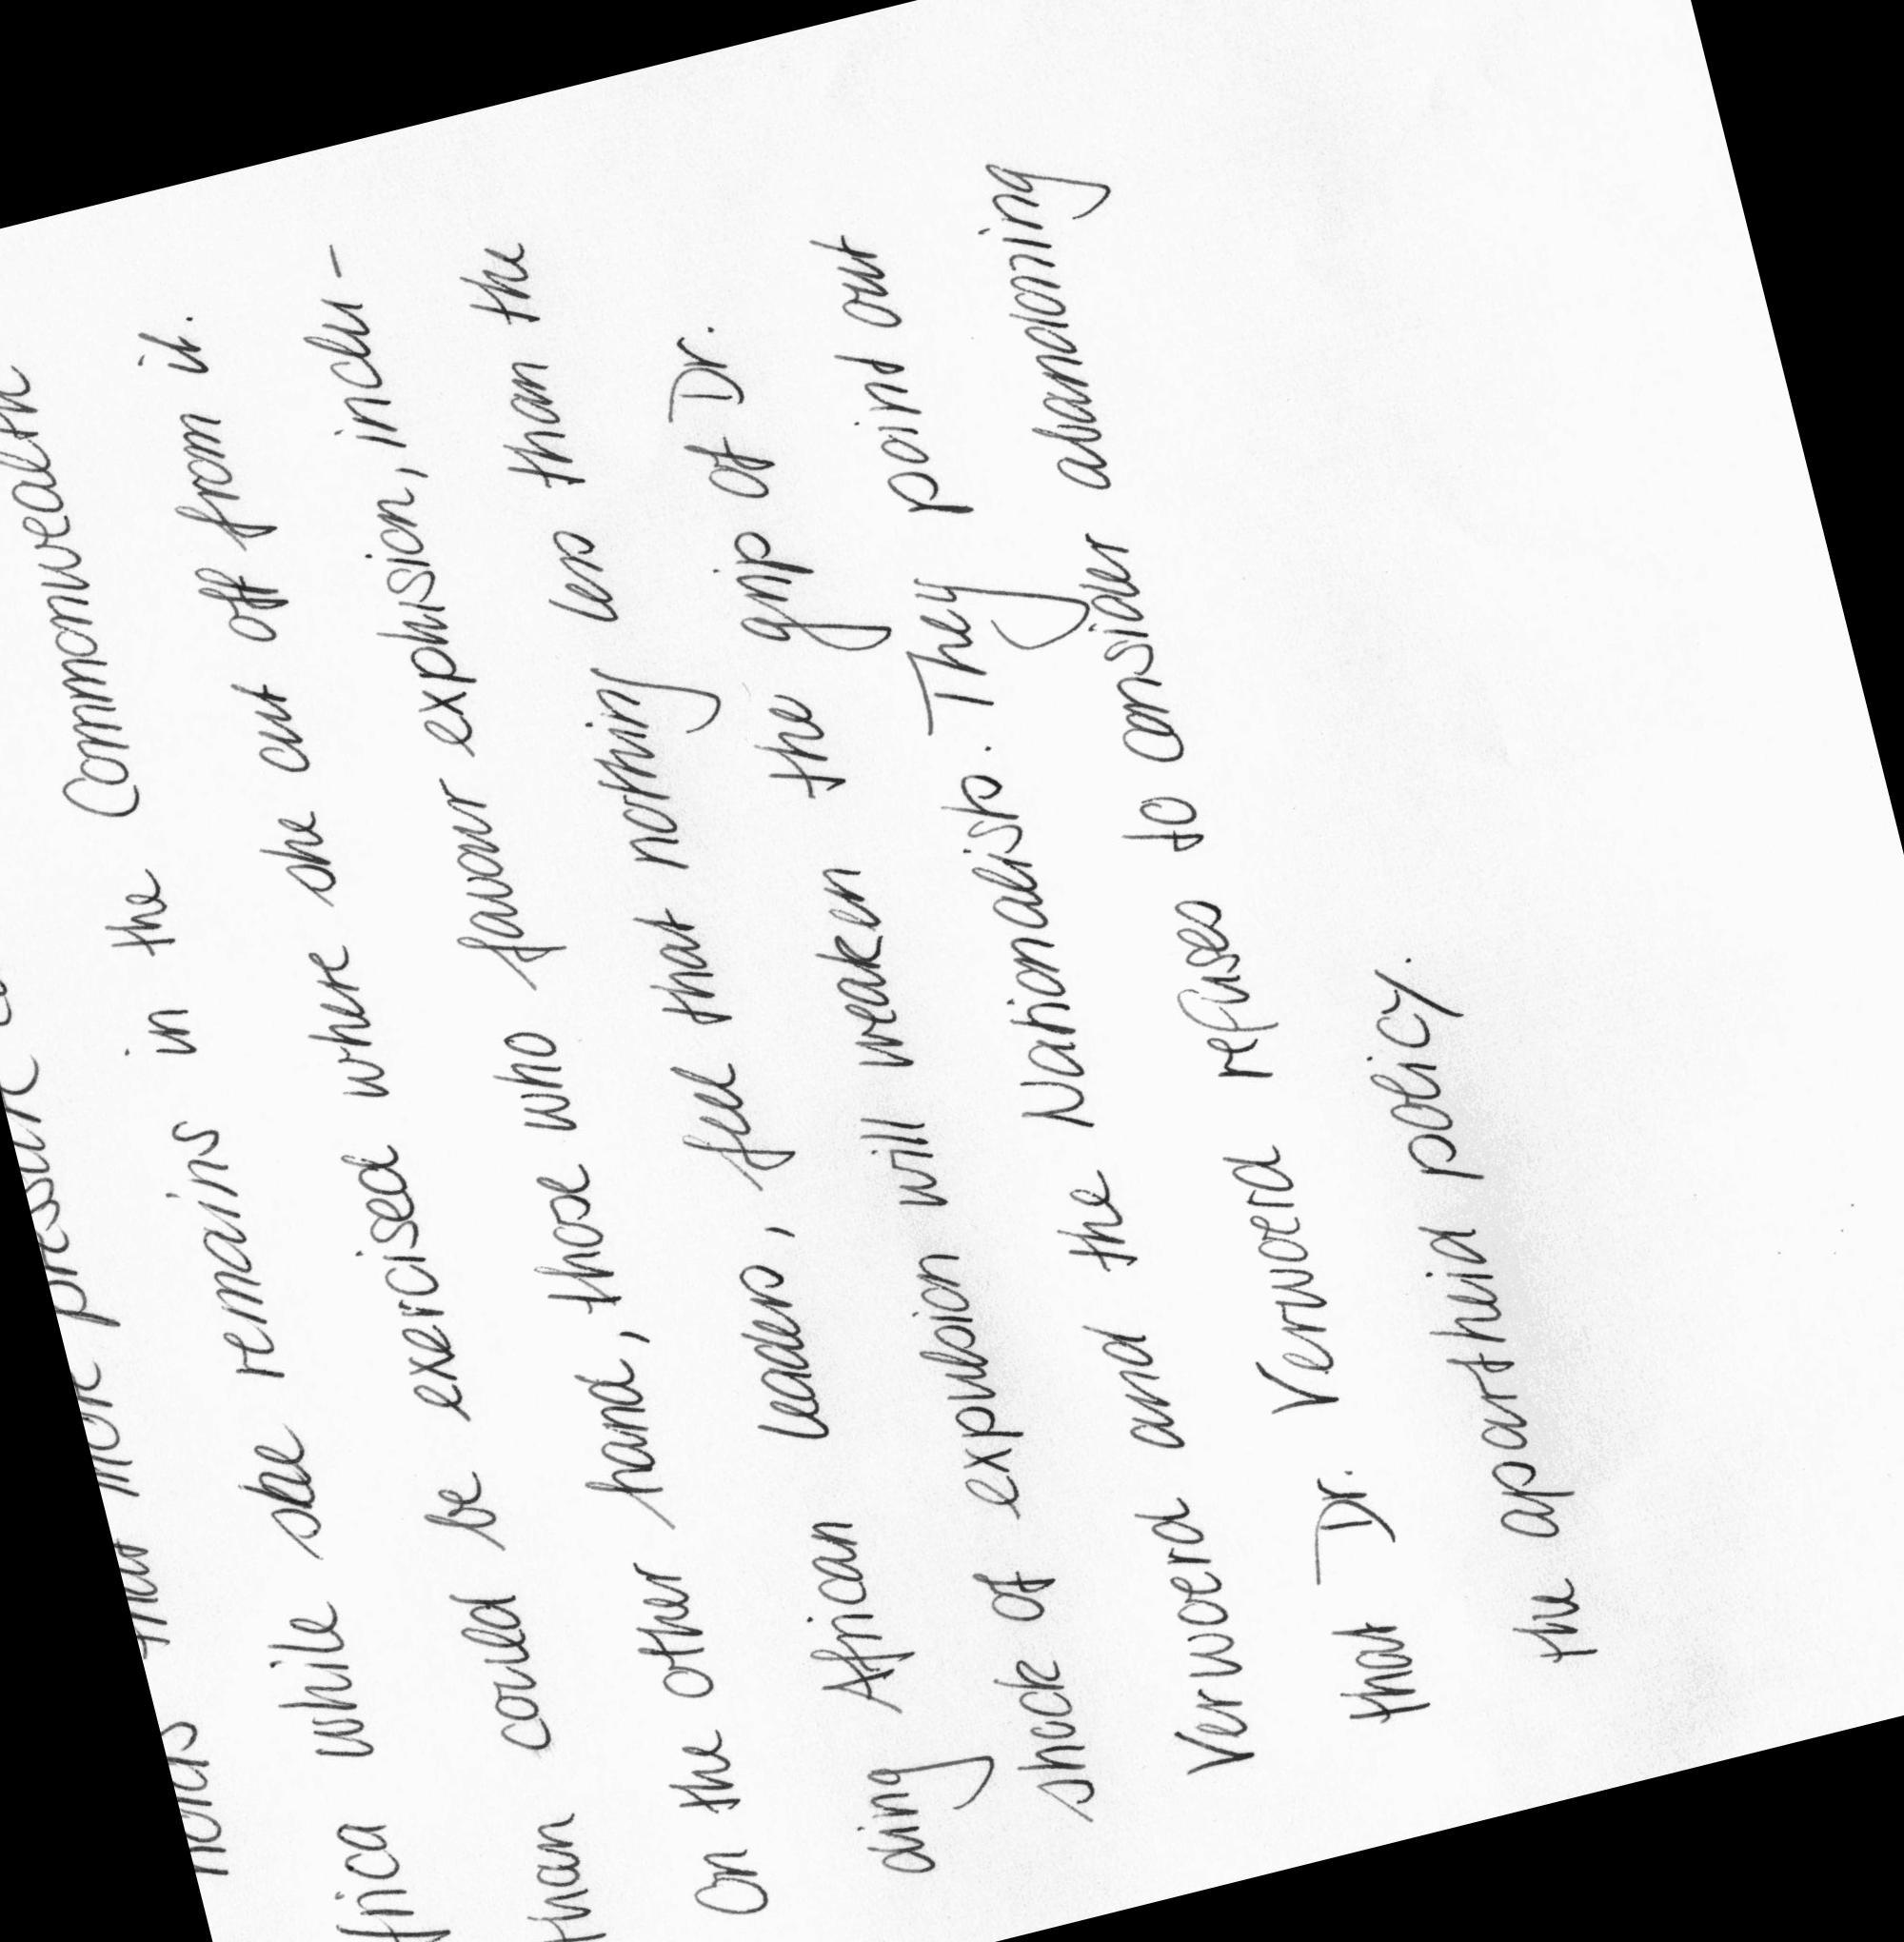 holds that more pressure
frica while she remains in the Commonwealth
than could be exercised where she cut off from it.
On the other hand, those who favour explusion, inclu-
ding African leaders, feel that nothing less than the
shock of expulsion will weaken the grip of Dr.
Verwoerd and the Nationalists. They point out
that Dr. Verwoerd refuses to consider abandoning
the apartheid policy.